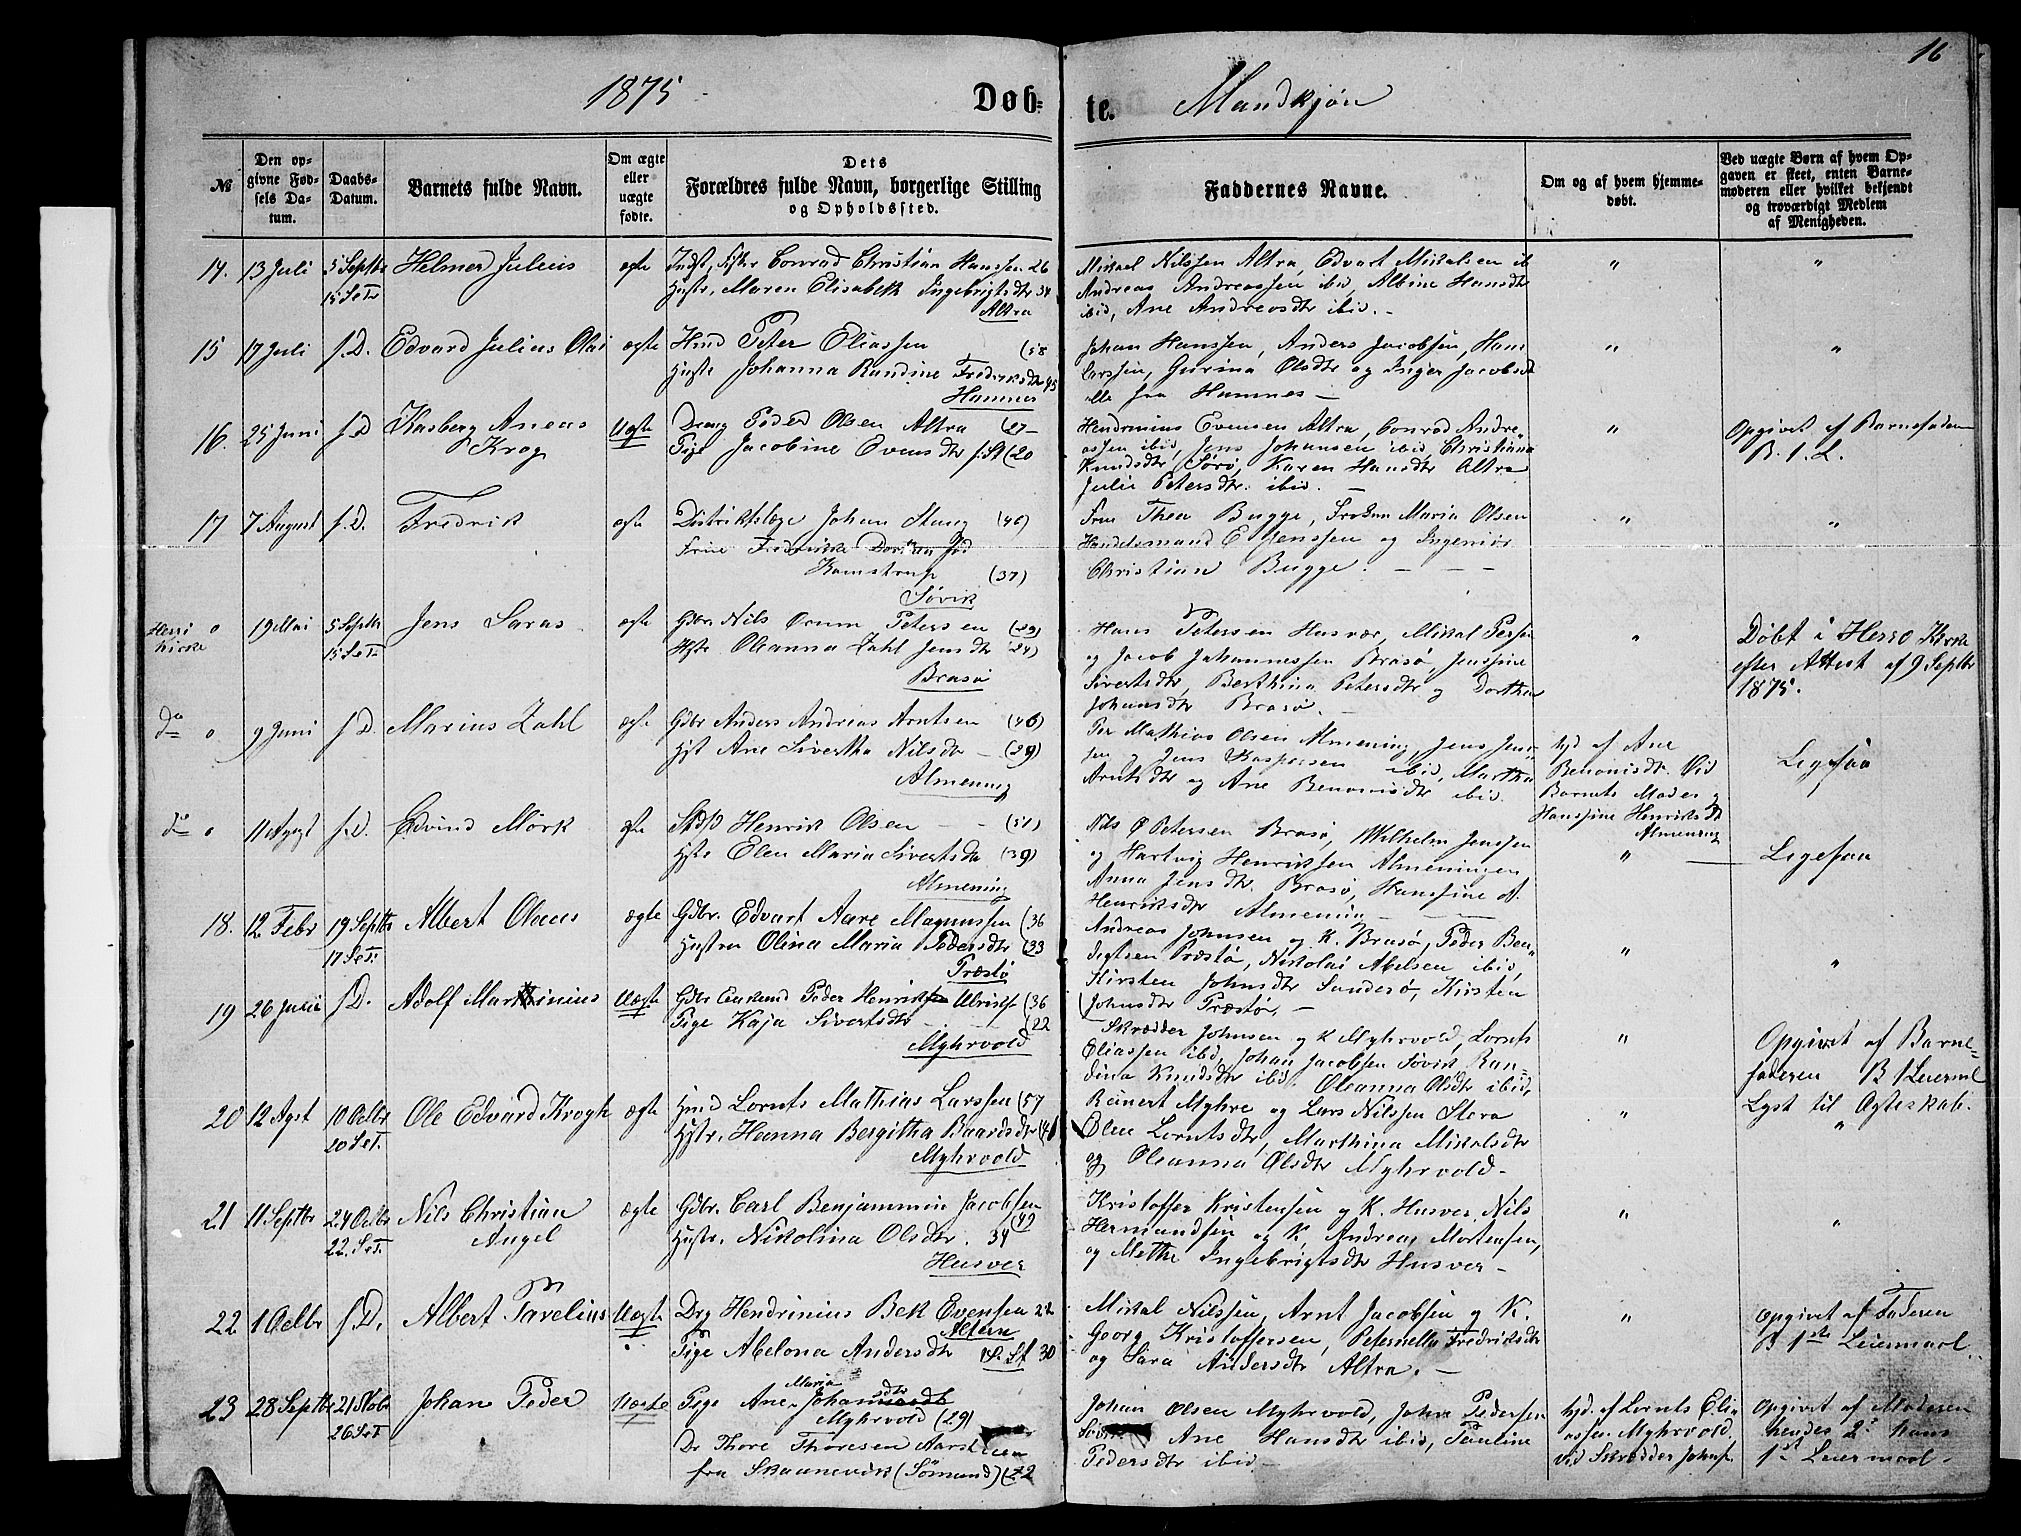 16
1875
Døb-
te.
Mandkjøn
№
Den op-
givne Fød-
sels Da-
tum.
Daabs-
Datum.
Barnets fulde Navn.
Om ægte
eller
uægte
fødte.
Dets
Forældres fulde Navn, borgerlige Stilling
og Opholdssted.
Faddernes Navne.
Om og af hvem hjemme-
døbt.
Ved uægte Børn af hvem Op-
gaven er skeet, enten Barne-
moderen eller hvilket bekjendt
og troværdigt Medlem
af Menigheden.
14. 13 Juli 5 Septbr
15 S e T
Helmer Julius
ægte
Indst, Fisker Conrad Christian Hanssen 26
Hustr. Maren Elisabeth Ingebrigtsdtr 34
Altra
Mikael Nilssen Altra, Edvart Mikalsen ib
Andreas Andreassen ibid, Albine Hansdtr
ibid, Ane Andreasdtr ibid. -
"
"
15 17 Juli s. D.
Edvard Julius Olai
ægte
Hmd Peter Eliassen (58
Huste Johanna Randine Fredriksdtr 45
Hamnes
Johan Hanssen, Anders Jacobsen, Hans
Larssen, Gurina Olsdtr og Inger Jacobsdt
alle fra Hamnes -
"
"
16. 25 Juni s. D
Kasberg Aneas
Krog
Uægte
Dreng Peder Olsen Altra (27-
Pige Jacobine Evensdtr s. St (20
Hendrinius Evensen Altra, Conrad Andre-
assen ibid, Jens Johansen ibid, Christiana
Knudsdtr Sørø, Karen Hansdtr Altra
Julie Petersdtr. ibid. -
"
Opgivet af Barnefaderen
B. 1. L.
17 7 August s. D.
Fredrik
ægte
Distriktslæge Johan Stang (46)
Frue Fredrikke
Kamstrup (37)
Søvik
Frue Thea Bugge, Frøken Maria Olsen
Handelsmand E Jenssen og Ingeniør
Christian Bugge. - - -
"
"
Herrø
Kirke
19 Mai 5 Septbr
15 S e T.
Jens Saras
ægte
Gdbr. Nils Ovum Petersen (29)
Hste Oleanna Zahl Jensdtr (24)
Brasø
Hans Petersen Husvær, Mikal Persen
og Jacob Johannessen Brasø, Jenssine
Sivertsdtr, Berthina Petersdtr og Dorthea
Johansdtr Brasø. -
"
Døbt i Herrø Kirke
efter Attest af 9 Septbr
1875.
do 9 Juni s. D.
Marius Zahl
ægte
Gdbr Anders Andreas Arntsen (46)
Hst Ane Sivertha Nilsdtr - (29)
Almening
Per Mathias Olsen Almening, Jens Jens-
sen og Jens Kaspersen ibid, Martha
Arntsdtr og Ane Benonisdtr ibid.
hjd af Ane
Benonisdtr. Vid
Barnets Moder og
Hanssine Henriksdtr
Almening
Ligesaa
do 11 Agst s. D.
Edvind Mörk
ægte
Henrik Olsen - - (51)
Hste Elen Maria Sivertsdtr (39)
Almening
Nils O Petersen Brasø, Wilhelm Jenssen
og Hartvig Henriksen Almeningen
Anna Jensdtr Brasø, Hanssine A.
Henriksdtr Almening - - -
"
Ligesaa
18. 12 Febr 19 Septbr
17 S e T.
Albert Olaus
ægte
Gdbr. Edvart Aare Magnussen (36
Hustru Olina Maria Pedersdtr (33
Præstø
Andreas Johnsen og K. Brasø, Peder Ben-
digtsen Præstø, Nikolai Abelsen ibid,
Kirsten Johnsdtr Sanderø, Kirsten
Johnsdtr Præstø, -
"
"
19 26 Julii s. D.
Adolf Martinius
Uægte
Gdbr Enkemd Peder Henrik Ulriks (36
Pige Kaja Sivertsdtr - - (22
Myhrvold
Skrædder Johnsen og K Myhrvold, Lornts
Eliassen ibid, Johan Jacobsen Søvik Ran-
dina Knudsdtr ibid. Oleanna Olsdtr ibid,
"
Opgivet af Barne-
faderen B 1 Leierml
Lyst til Ægteskab.
20 12 Agst 10 Octbr
20 S e T.
Ole Edvard Krogh
ægte
Hmd Lornts Mathias Larssen (57
Hstr. Hanna Bergitha Baardsdtr (41
Myhrvold
Reinert Myhre og Lars Nilssen Stora
Elen Lorntsdtr, Marthina Mikalsdtr
og Oleanna Olsdtr Myhrvold-
"
"
21 11 Septbr 24 Octbr
22. S e T.
Nils Christian
Angel
ægte
Gdbr. Carl Benjammin Jacobsen
(42
Hustr. Nikolina Olsdtr. 34
Husver
Kristoffer Kristensen og K. Husver, Nils
Hermandsen og K, Andreas Mortensen,
og Methe Ingebrigtsdtr Husver-
"
"
22 1 Octbr s. D.
Albert Parelius
Uægte
Drg Hendrinius Bek Evensen 22
Altern
Pige Abelona Andersdtr s. St 30
Mikal Nilssen, Arnt Jacobsen og K.
Georg Kristoffersen, Peternella Fredriksdtr
og Sara Andersdtr Altra. -
"
Opgivet af Faderen
B 1ste Leiermaal.
23 28 Septbr 21 Nobr
26 S e T
Johan Peder
Uægte
Maria
Pige Ane Johansdtr
Myhrvold (29)
Dr Thore Thoresen
fra Skaanevik (Sømand) (22
Johan Olsen Myhrvold, John Pedersen
Søvik Ane Hansdtr ibid, Pauline
Pedersdtr ibid
hjd. af Lornts Eli-
assen Myhrvold
vid Skrædder Johns.
Opgivet af Moderen
hendes 2. hans
1st Leiermaal-